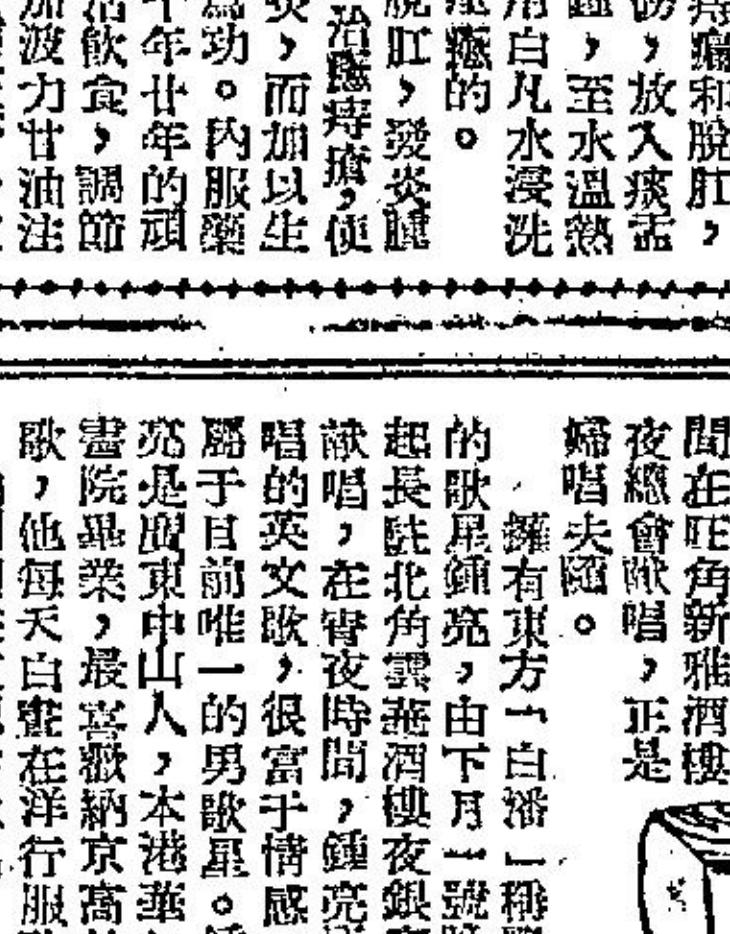 痔瘡和脫肛,
,放入痰盂
,至水溫熱
用白凡水浸洗
的。
脫肛,發炎腫
治癒痔瘡,使
炎,而加以生
爲功。內服藥
十年廿年的頑
飲食,調節
加波力甘油注
間在旺角新雅酒樓
夜總會獻唱,正是
婦唱夫隨。
擁有東方「白潘」稱
的歌星鍾亮,由下月一號
起長駐北角雲華酒樓夜銀
献唱,在宵夜時間,鍾亮
唱的英文歌,很富于情感
屬于目前唯一的男歌星。
亮是廣東中山人,本港華
書院畢業,最喜歡納京高
歌,他每天白晝在洋行服